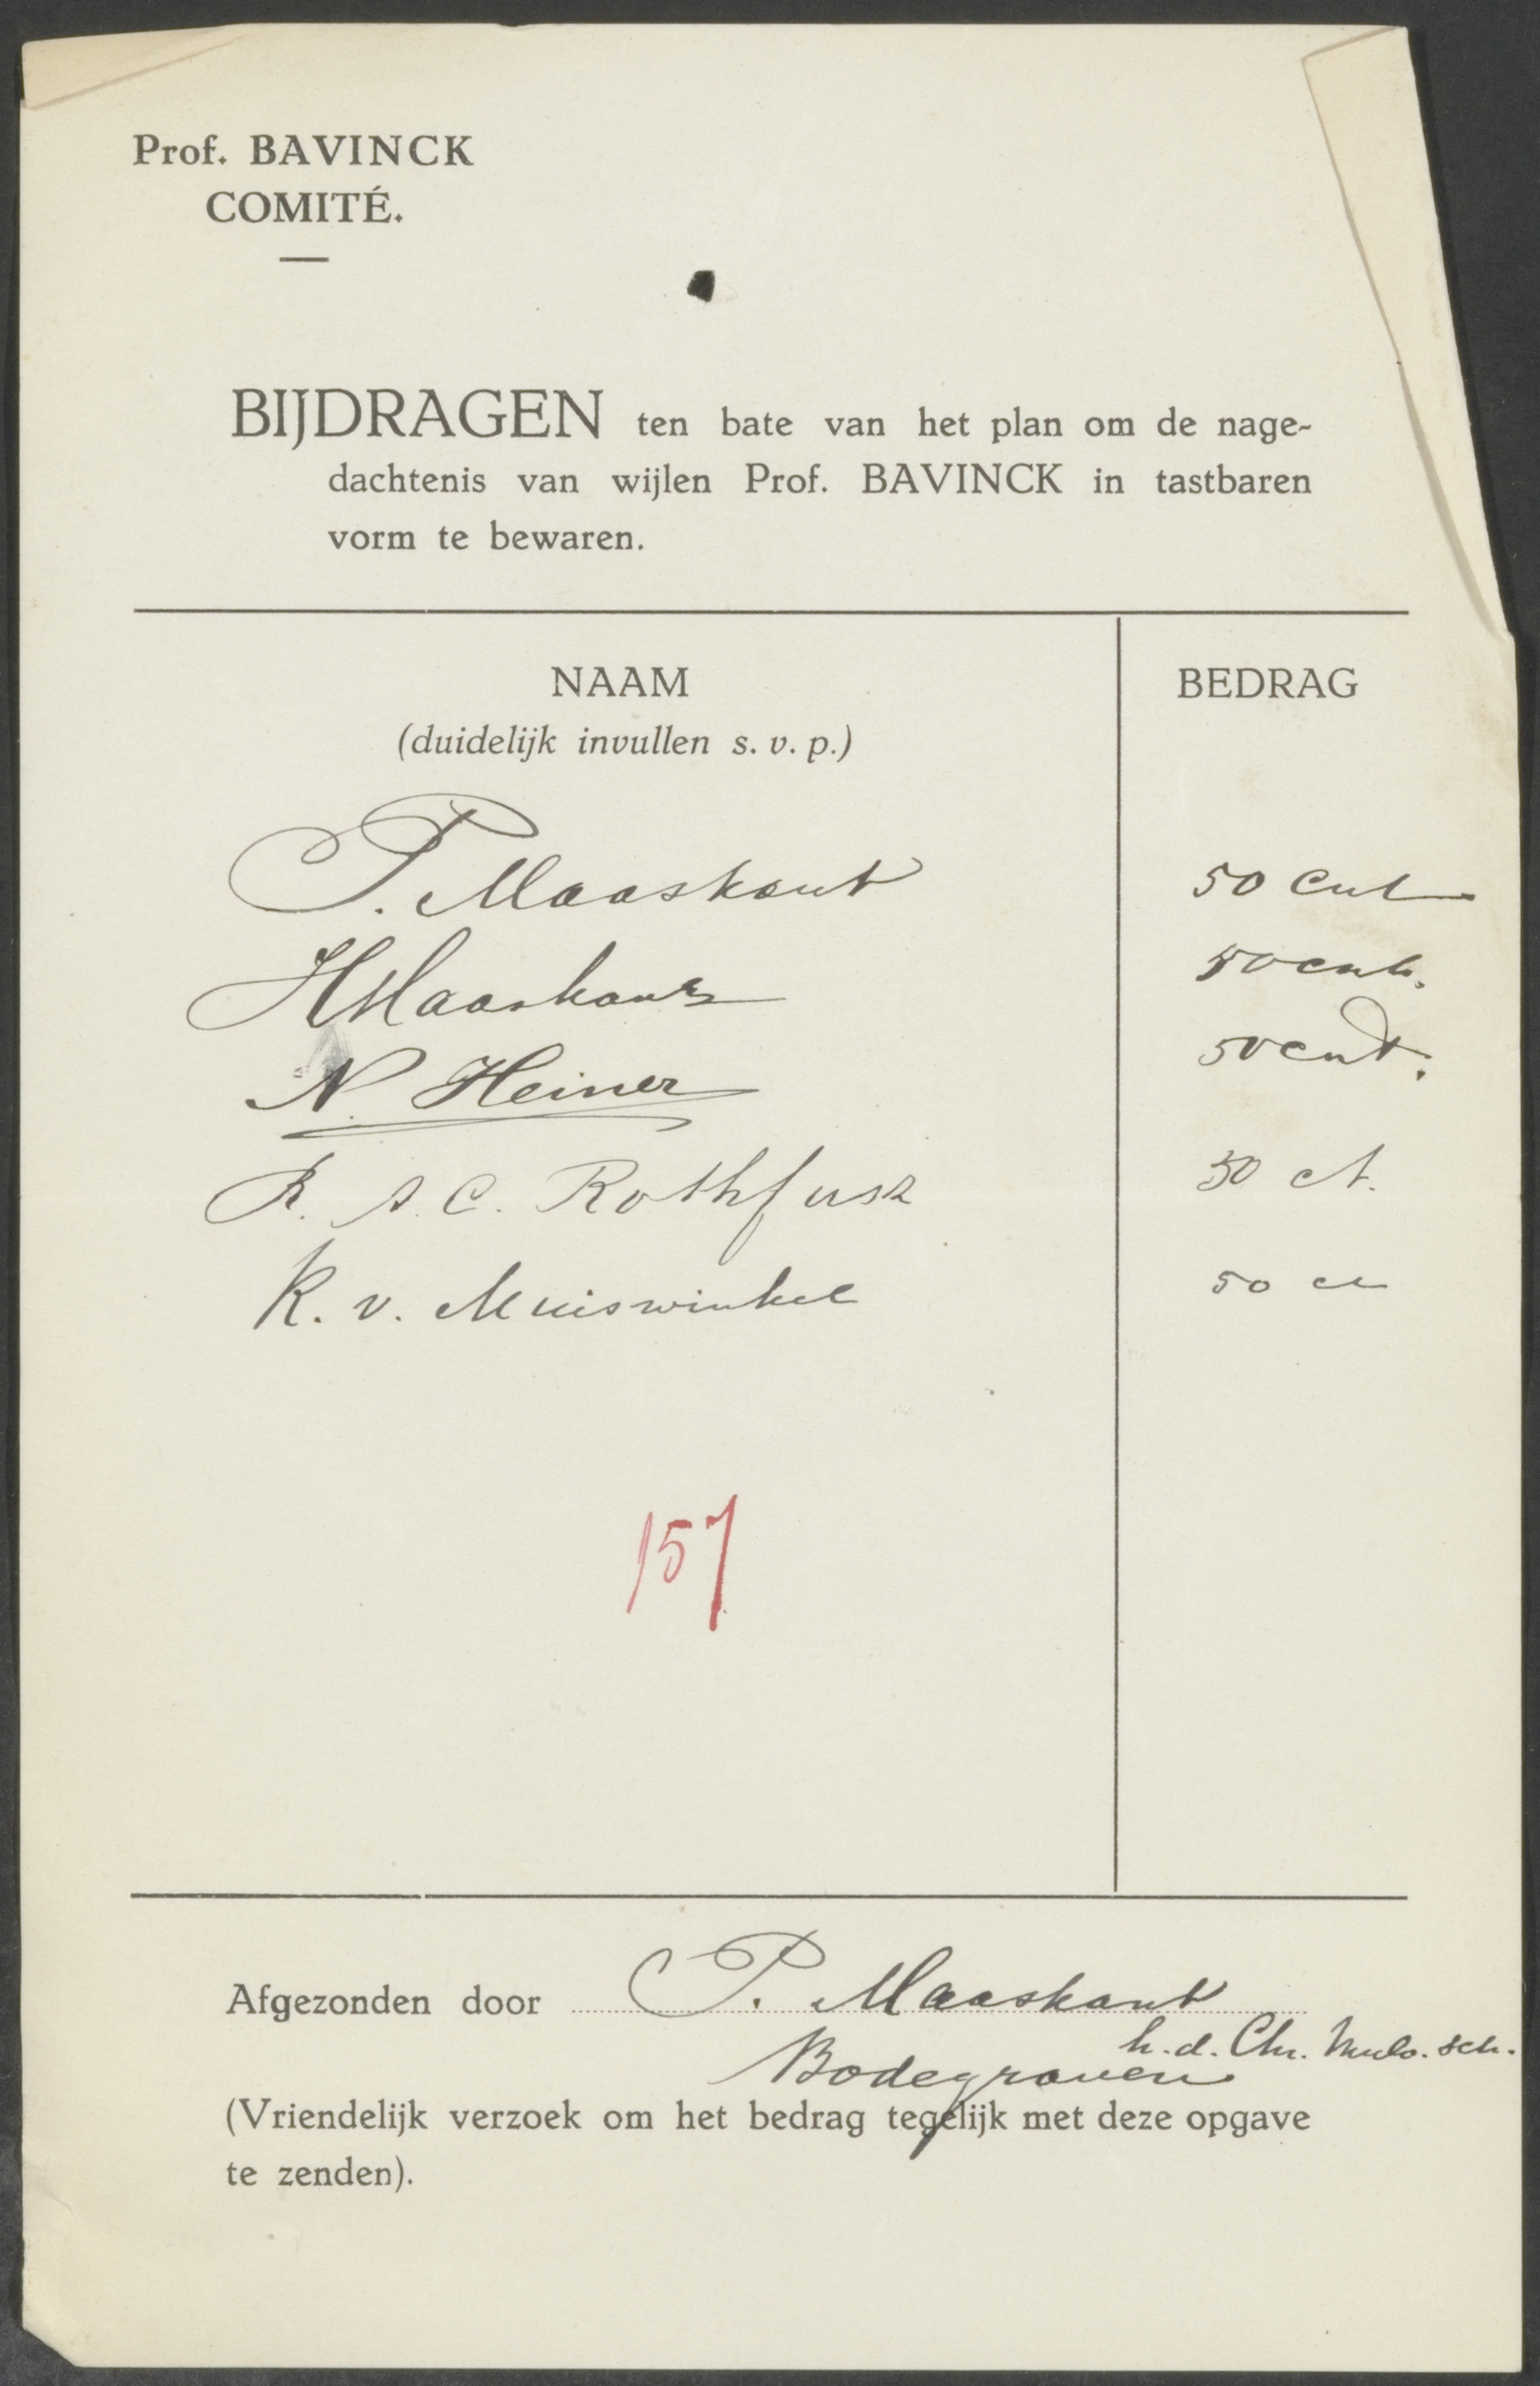 Prof. BAVINCK
COMITÉ.
BIJDRAGEN ten bate van het plan om de nage-
dachtenis van wijlen Prof. BAVINCK in tastbaren
vorm te bewaren.
NAAM BEDRAG
(duidelijk invullen s. v. p.)
P. Maaskant 50 cent
H Maaskant 50 cent.
N. Heiner 50 cent.
R. A. C. Rothfusz 50 ct.
K. v. Muiswinkel 50 ct
157
Afgezonden door P. Maaskant
h. d. Chr. Mulo. sch.
Bodegraven
(Vriendelijk verzoek om het bedrag tegelijk met deze opgave
te zenden).